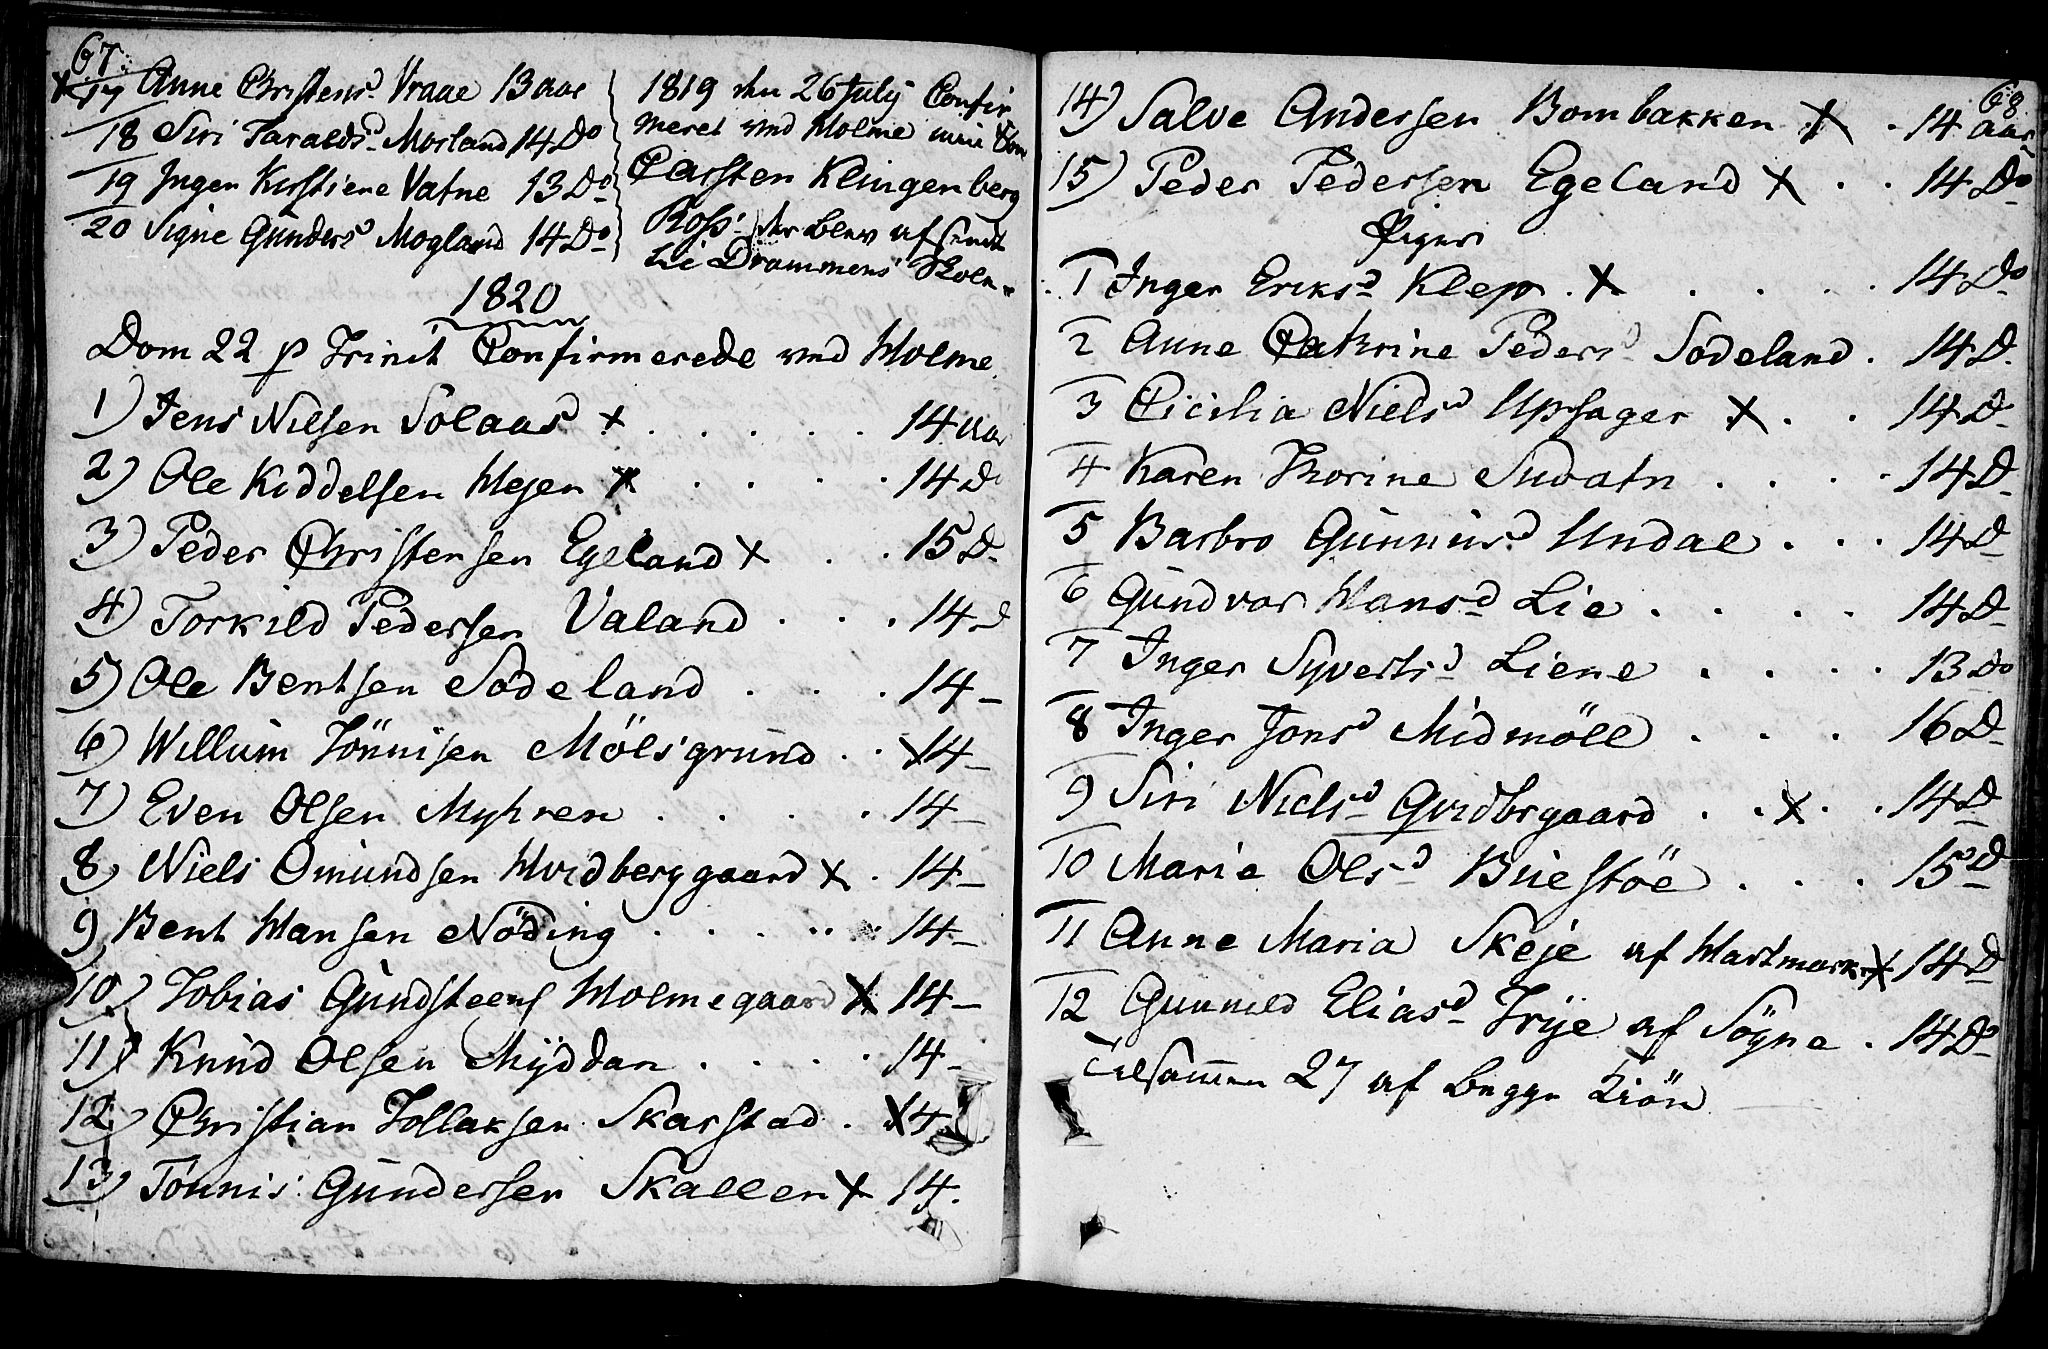 67.
17 Anne Christensd. Vraae 13 aar
18 Siri Taraldsd. Morland 14 Do
19 Inger Kirstiene Vatne 13 Do
20 Signe Gundersd Mogland 14 Do
1819 den 26 July Confir
meret ved Holme min Søn
Carsten Klingenberg
Ross. der blev afsendt
til Drammens Skole
1820
Dom 22 p Trinit Confirmerede ved Holme
1) Jens Nilsen Solaas x . . . . . 14 aar
2) Ole Kiddelsen Hejen x . . . . 14 D
3) Peder Christensen Egeland x . . 15 D
4) Torkild Pedersen Valand . . . 14 D
5) Ole Bentsen Södeland . . . 14 –
6) Willum Tönnisen Mölsgrund . . x 14 –
7) Even Olsen Myhren . . . . 14 –
8) Niels Omundsen Hvidberggaard x . 14 –
9) Bent Hansen Nöding . . . . 14 –
10) Tobias Gundsteens Holmegaard x 14 –
11) Knud Olsen Mÿddan . . . . 14 –
12) Christian Tollaksen Skarstad . x 14
13) Tönnis Gundersen Skallen x 14.
68
14) Salve Andersen Bombakken x . 14 aar
15) Peder Pedersen Egeland x . . 14 Do
Piger
1 Inger Eriksd Klep . x . . . . 14 Do
2 Anne Cathrine Pedersd Sodeland . 14 D.
3 Cicilia Nielsd Upsager x . . 14 D.
4 Karen Thorine Sudatn . . . . 14 D.
5 Barbro Gunnusd. Undal . . . 14 D
6 Gundvor Hansd Lie . . . . 14 D
7 Inger Syvertsd Liene . . . . 13 Do
8 Inger Jonsd Midmöll . . . 16 D
9 Siri Nielsd Gvidbrgaard . . x . . 14 D
10 Maria Olsd Buestöe . . . 15 D
11 Anne Maria Skeje af Hartmark x 14 D
12 Gunnild Eliasd Trÿe af Sögne . 14 D
Tilsammen 27 af begge Kiön